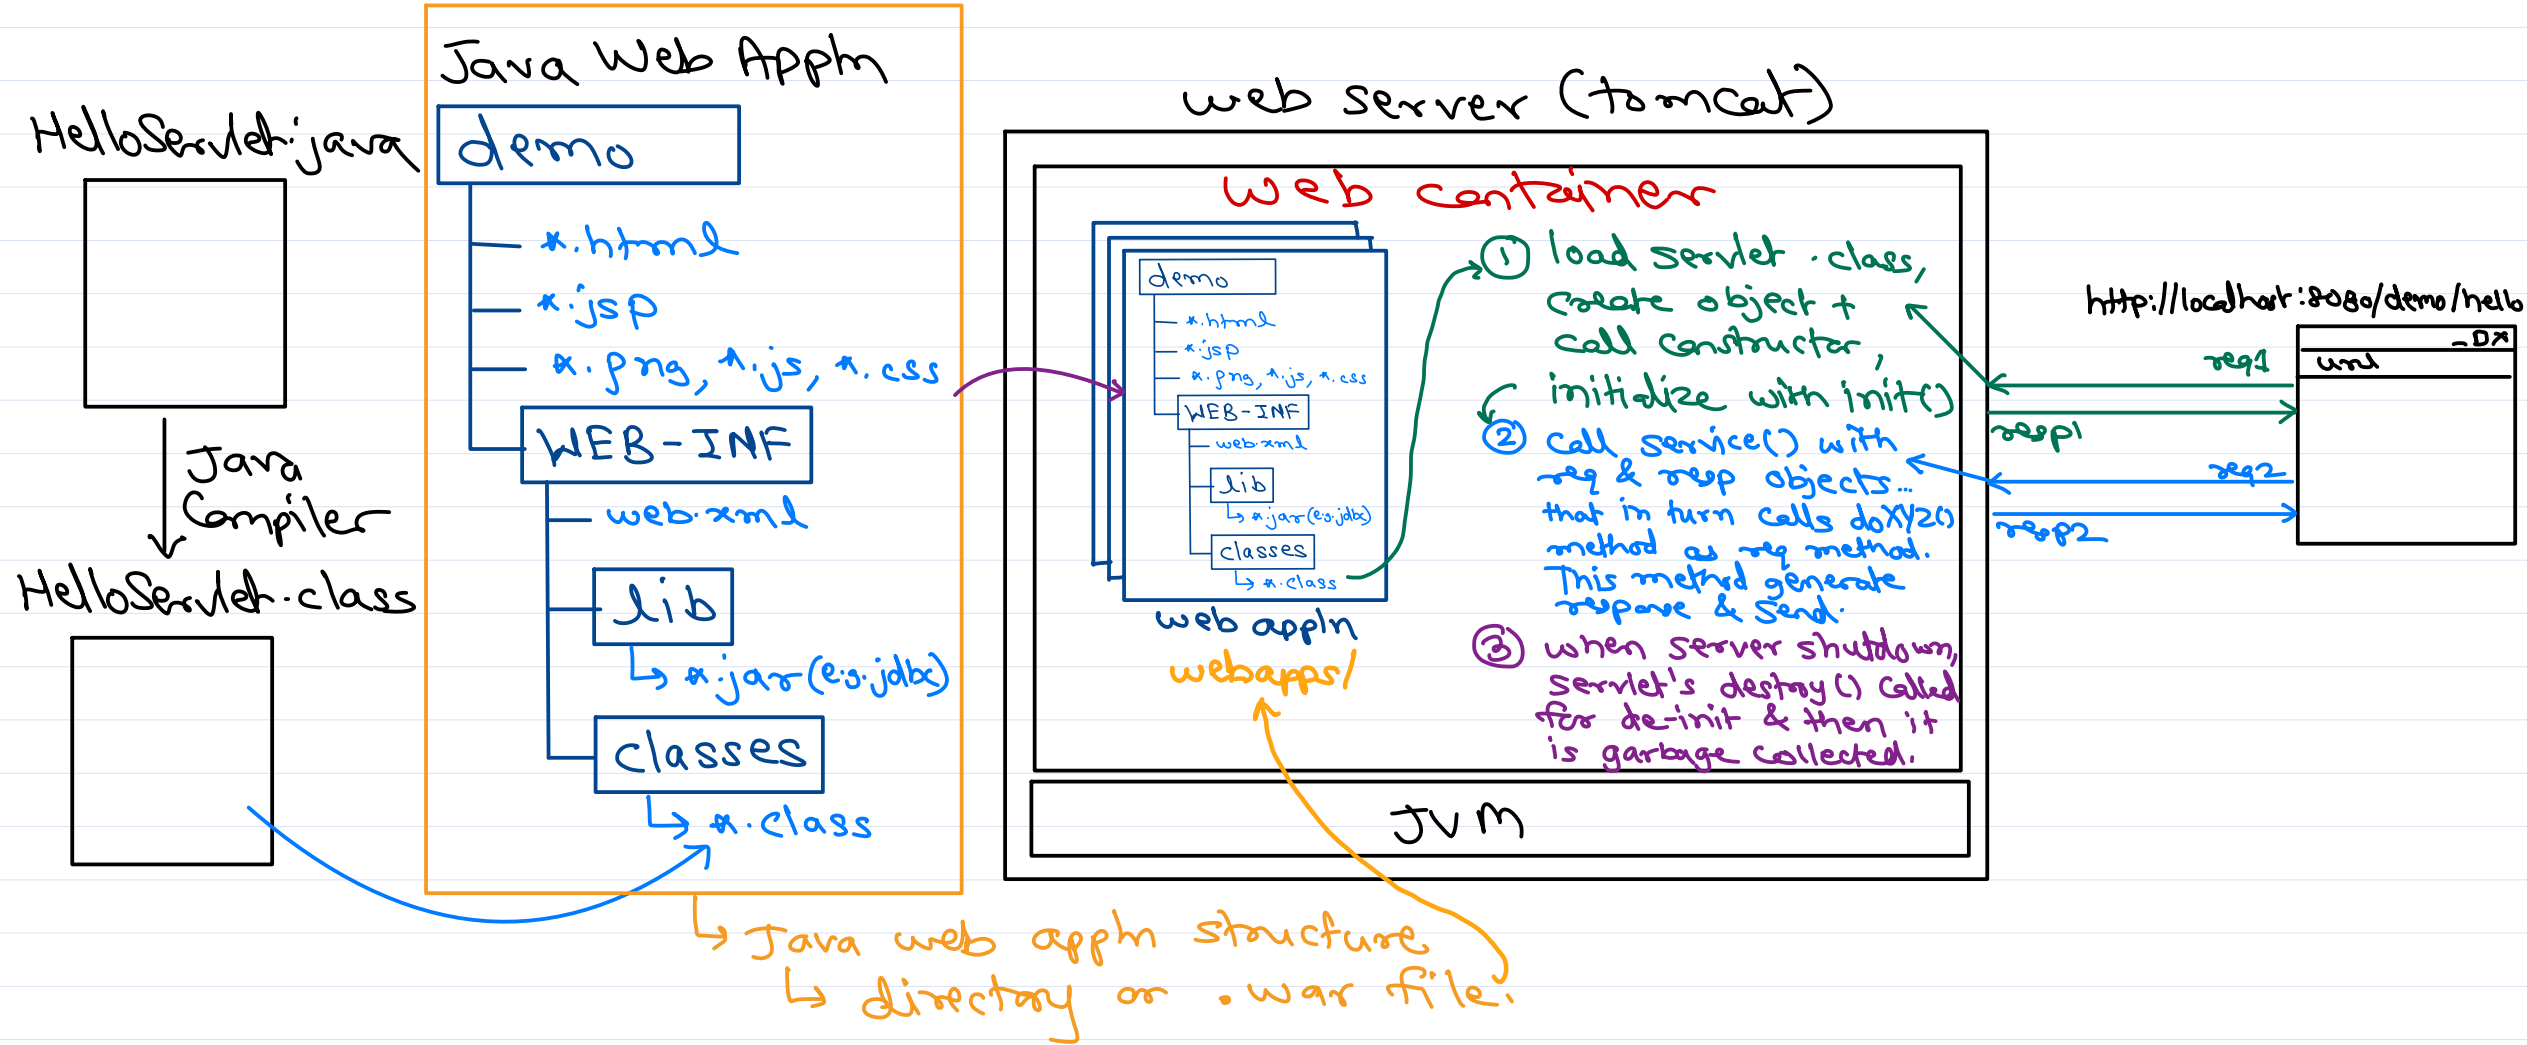 HelloServlet.java
Java
Compiler
HelloServlet.class
Java Web Appln
demo
*.html
*.jsp
*.png, *.js, *.css
WEB-INF
web.xml
lib
*.jar (e.g. jdbc)
classes
*.class
Java web appln structure
directory or .war file.
web server (tomcat)
web container
demo
*.html
*.jsp
*.png, *.js, *.css
WEB-INF
web.xml
lib
*.jar (e.g. jdbc)
classes
*.class
web appln
webapps/
1 load servlet .class,
create object +
call constructor,
initialize with init()
2 call service() with
req & resp objects...
that in turn calls doXYZ()
method as req method.
This method generate
response & send.
3 when server shutdown,
servlet's destroy() called
for de-init & then it
is garbage collected.
JVM
http://localhost:8080/demo/hello
_ □ X
url
req1
resp1
req2
resp2